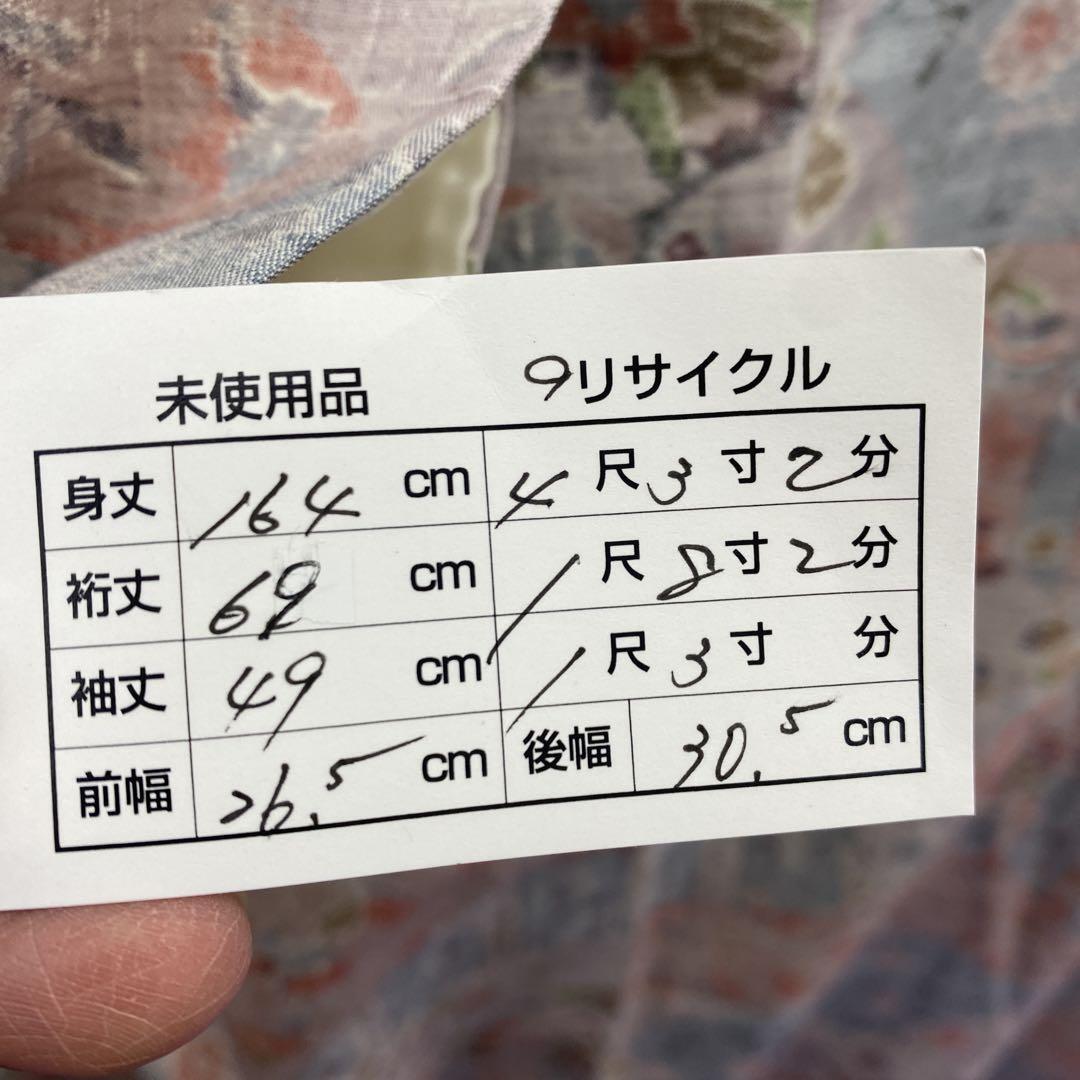 未使用品 9リサイクル
身丈 164 cm 4尺3寸2分
裄丈 69 cm 1尺8寸2分
袖丈 49 cm 1尺3寸 分
前幅 26.5 cm 後幅 30.5 cm